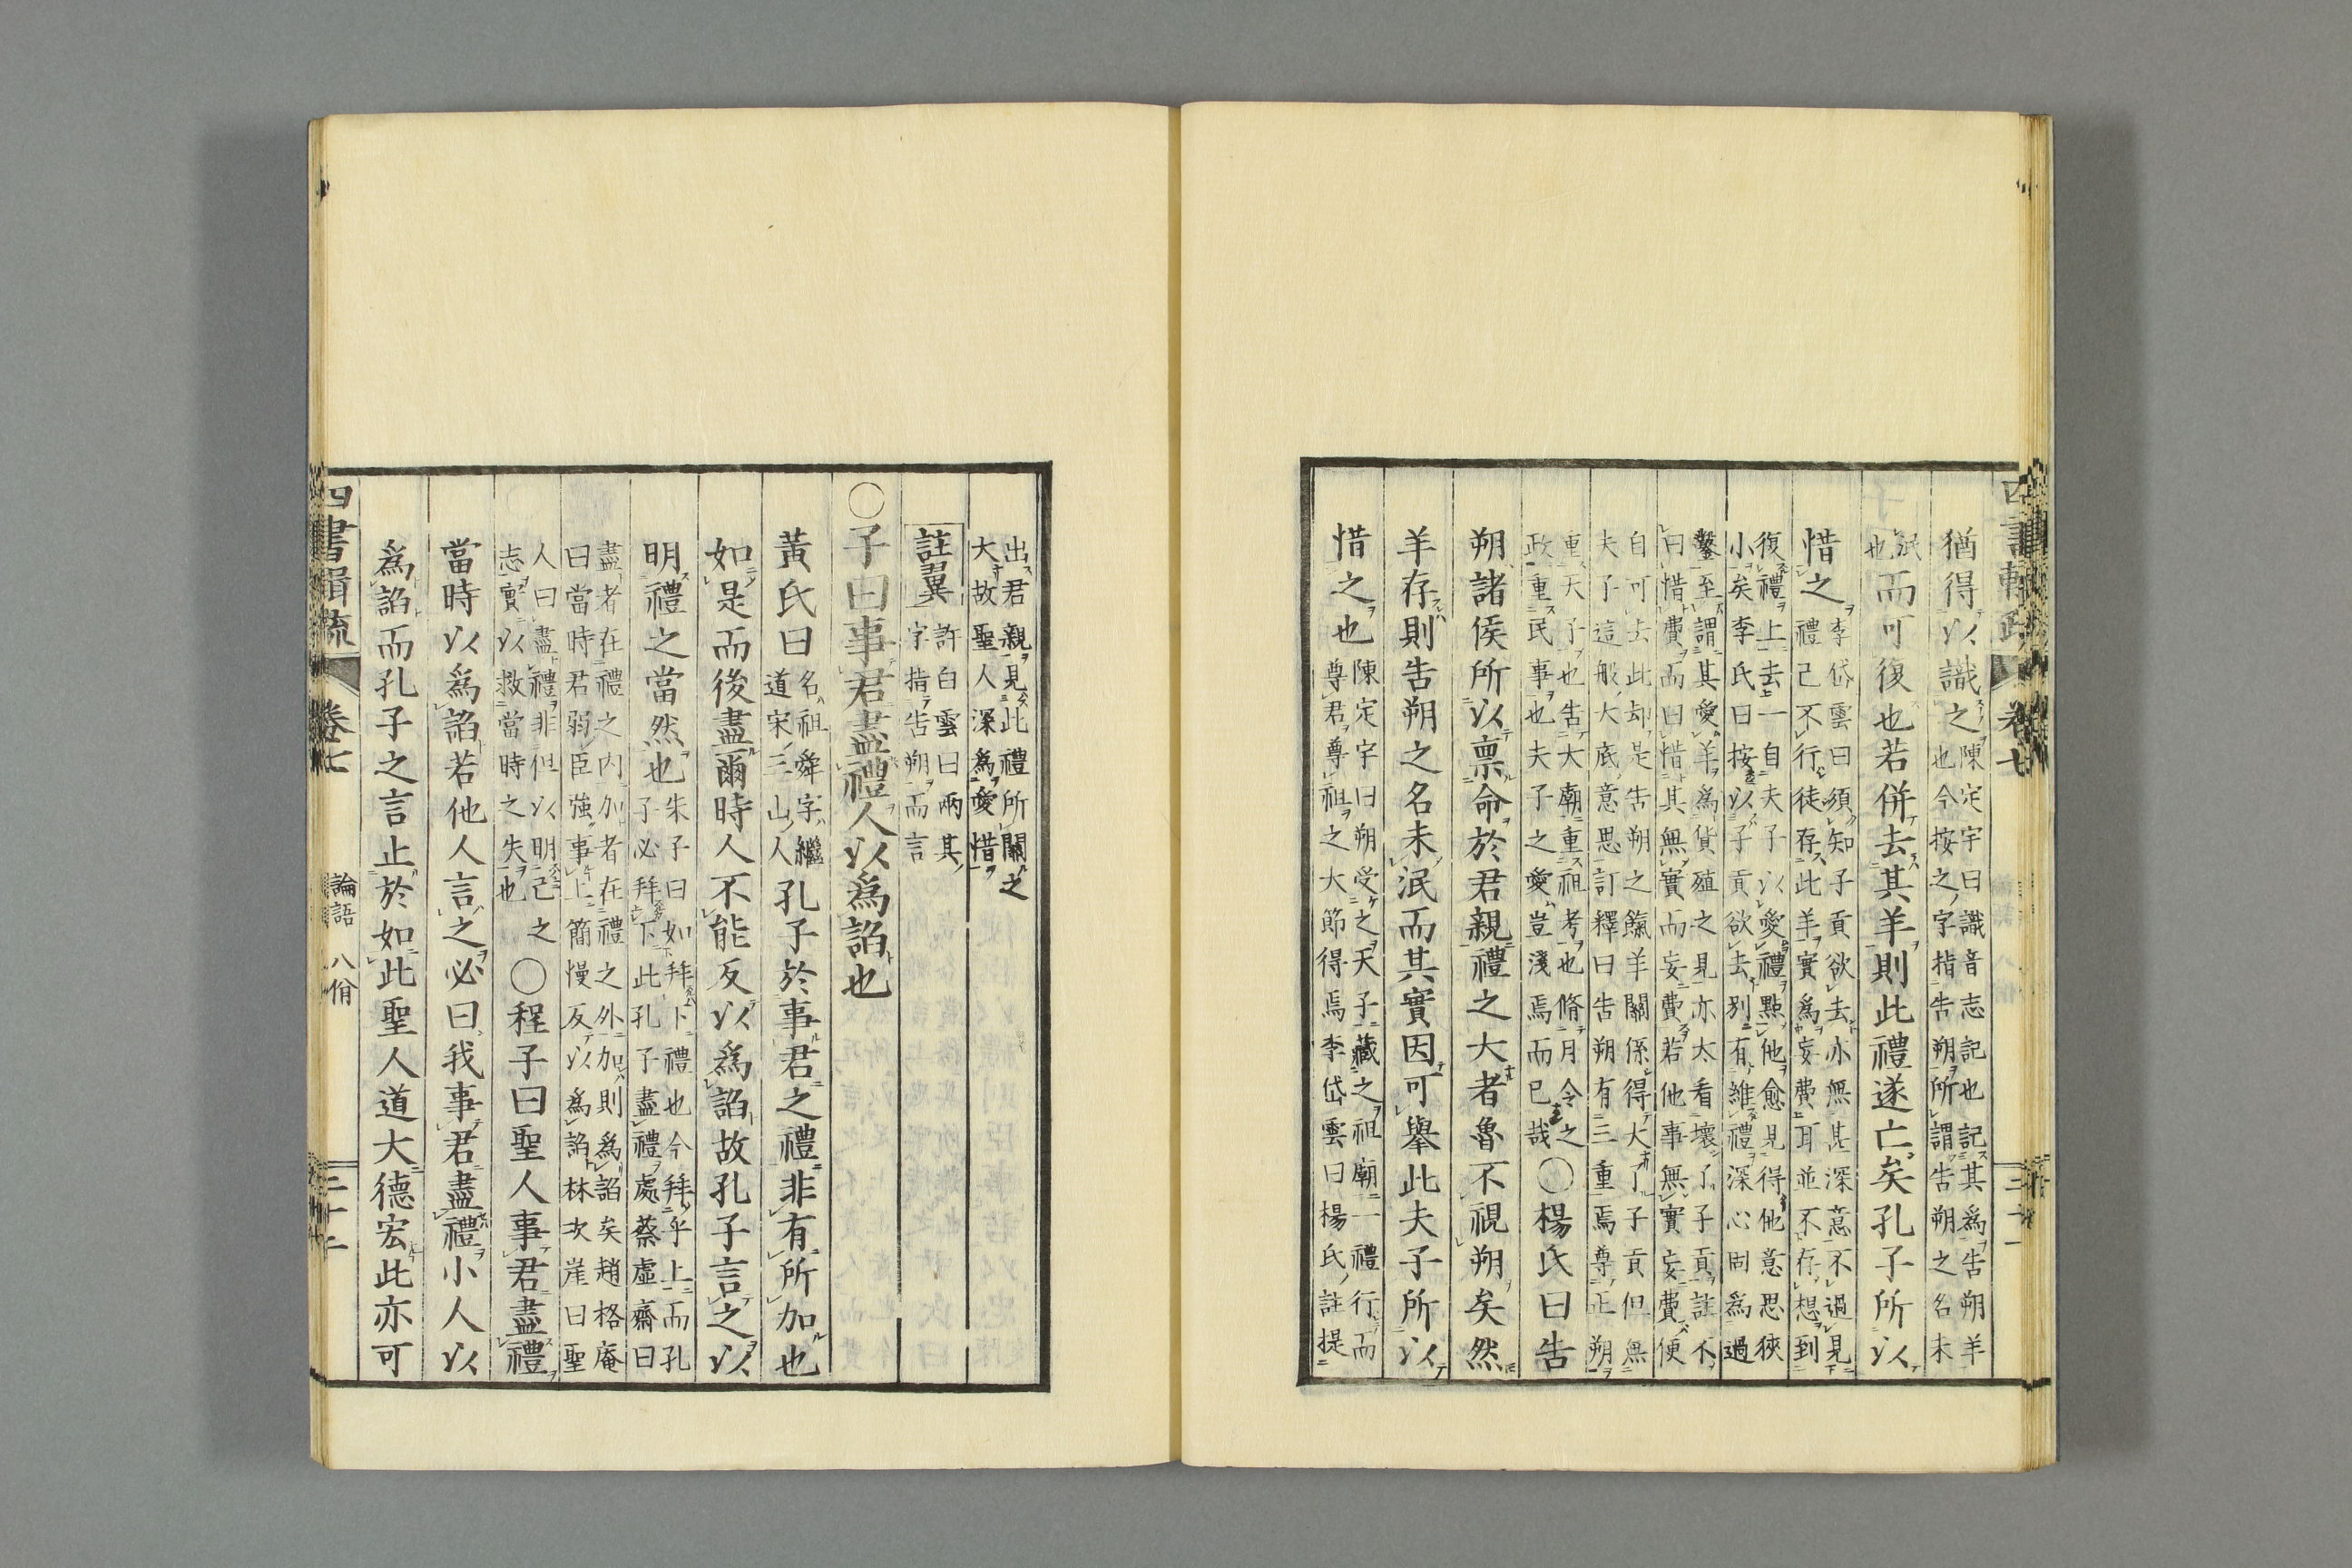 猶得以識之陳定宇曰識音志記也記其為告朔羊
也今按之字指告朔所謂告朔之名未
泯
也而可復也若併去其羊則此禮遂亡矣孔子所以
惜之李岱雲曰須知子貢欲去亦無甚深意不過見
禮已不行徒存此羊實為妄費耳並不存想到
復禮上去一自夫子以愛禮點他愈見得他意思狹
小矣李氏曰按以子貢欲去別有維禮深心固為過
鑿至謂其愛羊為貨殖之見亦太看壞了子貢註不
曰惜費而曰惜其無實而妄費若他事無實妄費便
自可去此却是告朔之餼羊關係得大了子貢但無
夫子這般大底意思訂釋曰告朔有三重焉尊正朔
重天子也告大廟重祖考也脩月令之
政重民事也夫子之愛豈淺焉而已哉○楊氏曰告
朔諸侯所以禀命於君親禮之大者魯不視朔矣然
羊存則告朔之名未泯而其實因可舉此夫子所以
惜之也陳定宇曰朔受之天子藏之祖廟一禮行而
尊君尊祖之大節得焉李岱雲曰楊氏註提
四書輯疏 卷七 三十一
出君親見此禮所關之
大故聖人深為愛惜
註翼許白雲曰兩其
字指告朔而言
○子曰事君盡禮人以為諂也
黃氏曰名祖舜字繼
道宋三山人孔子於事君之禮非有所加也
如是而後盡爾時人不能反以為諂故孔子言之以
明禮之當然也朱子曰如拜下禮也今拜乎上而孔
子必拜下此孔子盡禮處蔡虛齋曰
盡者在禮之內加者在禮之外加則為諂矣趙格庵
曰當時君弱臣強事上簡慢反以為諂林次崖曰聖
人曰盡禮非但以明己之
志實以救當時之失也○程子曰聖人事君盡禮
當時以為諂若他人言之必曰我事君盡禮小人以
為諂而孔子之言止於如此聖人道大德宏此亦可
四書輯疏 卷七 論語 八佾 三十二